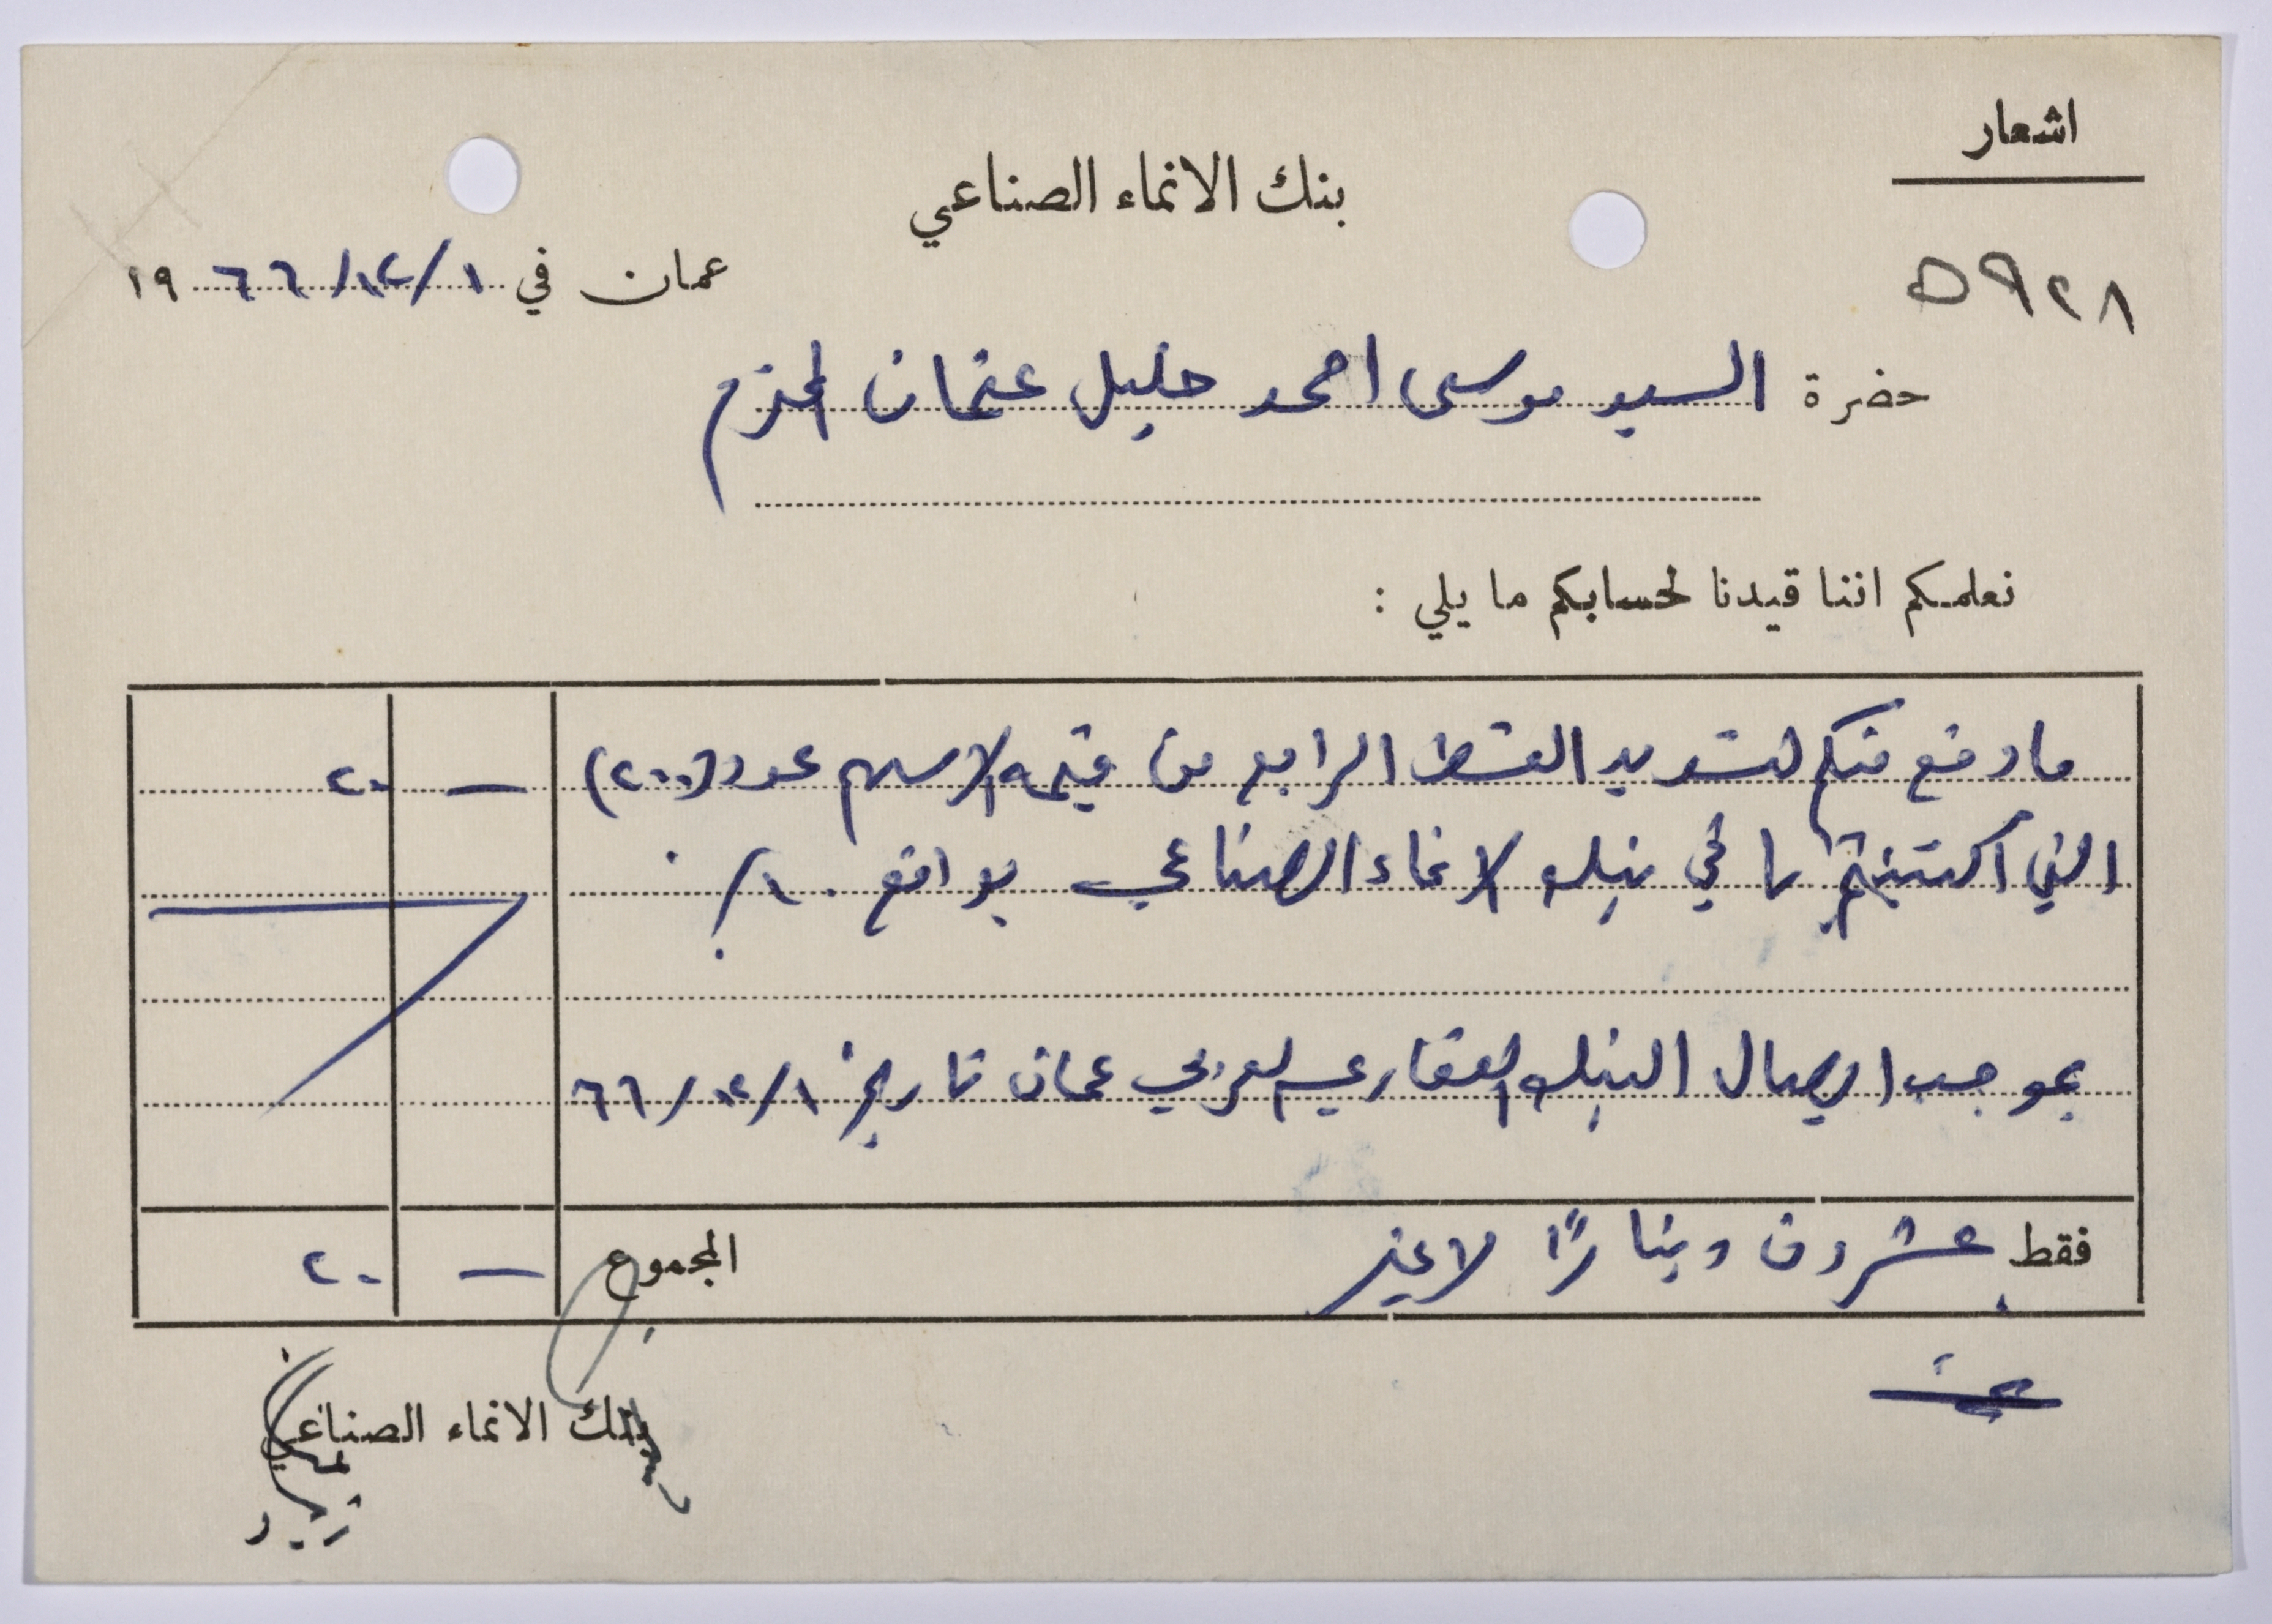 اشعار
بنك الانماء الصناعي
٥٩٢٨
عمان في ١/١٢/٦٦ ١٩
حضرة السيد موسى احمد خليل عثمان المحترم
نعلمكم اننا قيدنا لحسابكم ما يلي :
ما دفع منكم لتسديد القسط الرابع من قيمة الاسهم عدد (٢٠٠) — ٢٠
التي اكتتبتم بها في بنك الانماء الصناعي بواقع ١٠٪
بموجب ايصال البنك العقاري العربي عمان تاريخ ١/١٢/٦٦
فقط عشرون دينارًا لا غير المجموع — ٢٠
بنك الانماء الصناعي